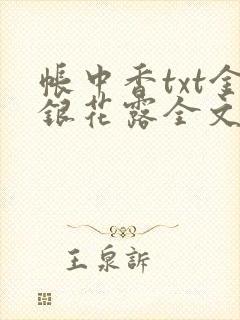 帳中香txt金
銀花露全文
王泉訴